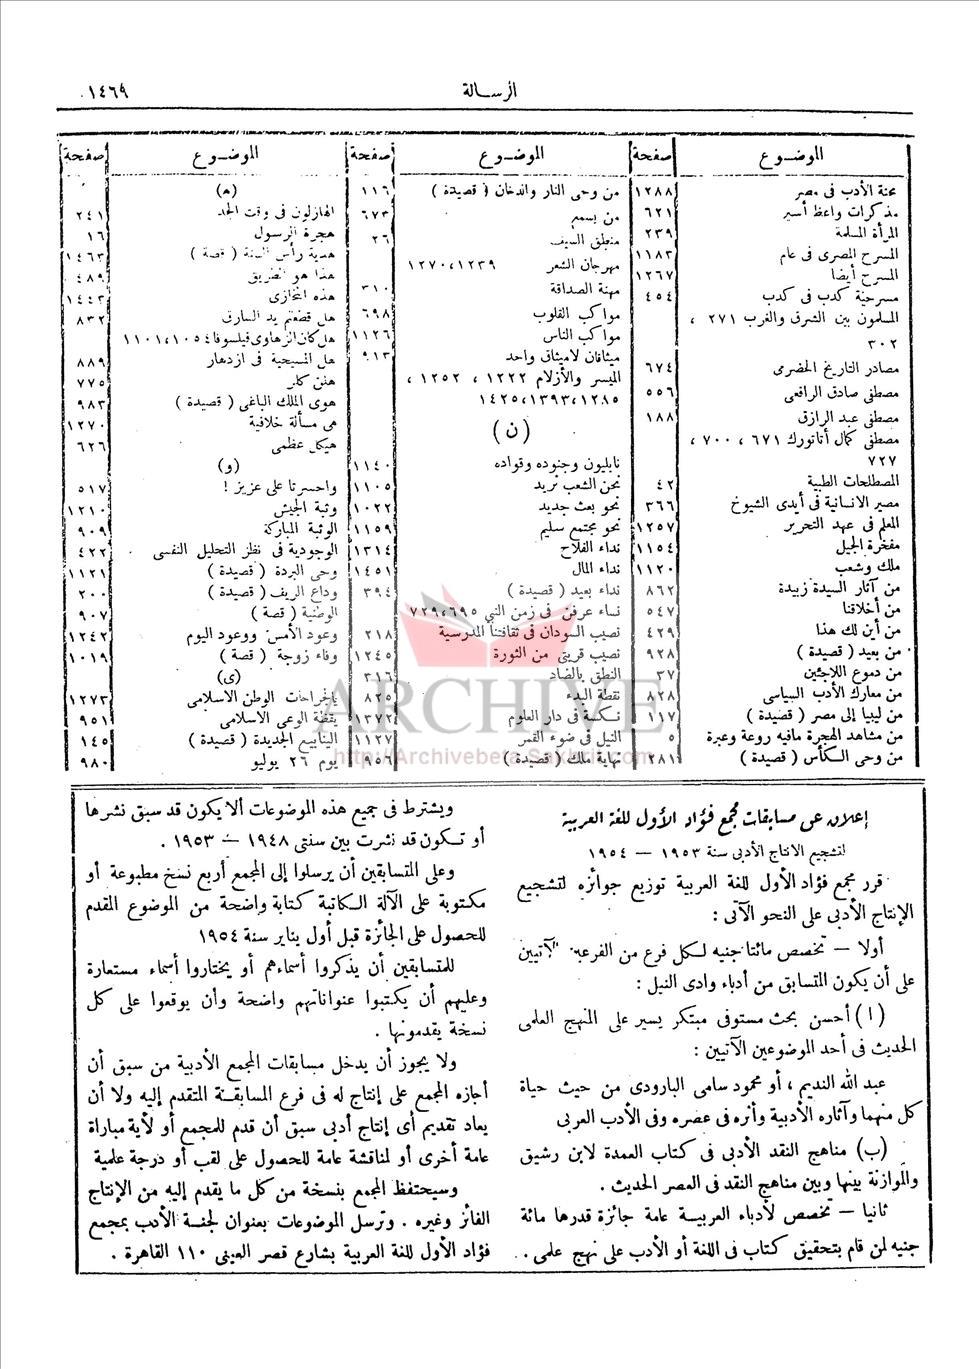 الرسالة
١٤٦٩
الموضوع صفحة
محنة الأدب فى مصر ١٢٨٨
مذكرات واعظ أسير ٦٢١
المرأة المسلمة ٢٣٩
المسرح المصرى فى عام ١١٨٣
المسرح أيضا ١٢٦٧
مسرحية كذب فى كذب ٤٥٤
المسلمون بين الشرق والغرب ٢٧١ ،
٣٠٢
مصادر التاريخ الحضرمى ٦٧٤
مصطفى صادق الرافعى ٥٥٦
مصطفى عبد الرازق ١٨٨
مصطفى كمال أتاتورك ٦٧١ ، ٧٠٠ ،
٧٢٧
المصطلحات الطبية ٤٢
مصير الانسانية فى أيدى الشيوخ ٣٦٦
المعلم فى عهد التحرير ١٢٥٧
مفخرة الجيل ١١٥٤
ملك وشعب ١١٢٠
من آثار السيدة زبيدة ٨٦٢
من أخلاقنا ٥٤٧
من أين لك هذا ٤٢٩
من بعيد ( قصيدة ) ٩٢٨
من دموع اللاجئين ٣٧
من معارك الأدب السياسى ٨٢٨
من ليبيا إلى مصر ( قصيدة ) ١١٧
من مشاهد الهجرة مافيه روعة وعبرة ٥
من وحى الكأس ( قصيدة ) ٢٨١
الموضوع صفحة
من وحى النار والدخان ( قصيدة ) ١١٦
من يسمع ٦٧٣
منطق السيف ٢٦
مهرجان الشعر ١٢٣٩،١٢٧٠
مهنة الصداقة ٣١٠
مواكب القلوب ٦٩٨
مواكب الناس ١١٢٦
ميثاقان لاميثاق واحد ٩١٣
الميسر والأزلام ١٢٢٢ ، ١٢٥٢ ،
١٢٨٥،١٣٩٣،١٤٢٥
(ن)
نابليون وجنوده وقواده ١١٤٠
نحن الشعب نريد ١١٠٥
نحو بعث جديد ١٠٢٢
نحو مجتمع سليم ١١٥٩
نداء الفلاح ١٣١٤
نداء المال ١٤٥١
نداء بعيد ( قصيدة ) ٣٩٤
نساء عرفن فى زمن النبي ٦٩٥،٧٢٩
نصيب السودان فى ثقافتنا المدرسية ٢١٨
نصيب قريتى من الثورة ١٢٤٥
النطق بالضاد ٣١٦
نقطة البدء ٨٢٥
نكسة فى دار العلوم ١٣٧٢
النيل فى ضوء القمر ١١٢٧
نهاية ملك ( قصيدة ) ٩٥٦
الموضوع صفحة
(ه)
الهازلون فى وقت الجد ٢٤١
هجرة الرسول ١٦
هدية رأس السنة ( قصة ) ١٤٦٣
هذا هو الطريق ٤٨٩
هذه المخازى ١٤٤٣
هل قطعتم يد السارق ٨٣٢
هل كان الزهاوى فيلسوفا ١٠٥٤،١١٠١
هل المسيحية فى ازدهار ٨٨٩
هلن كلر ٧٧٥
هوى الملك الباغى ( قصيدة ) ٩٨٣
هى مسألة خلافية ١٢٧٠
هيكل عظمى ٦٢٦
(و)
واحسرتا على عزيز ! ٥١٧
وثبة الجيش ١٢١٠
الوثبة المباركة ٩٠٩
الوجودية فى نظر التحليل النفسى ٤٢٢
وحى البردة ( قصيدة ) ١١٢١
وداع الريف ( قصيدة ) ٢٠٠
الوطنية ( قصة ) ٩٠٧
وعود الأمس ووعود اليوم ١٢٤٢
وفاء زوجة ( قصة ) ١٠١٩
(ى)
يالجراحات الوطن الاسلامى ١٢٧٣
يقظة الوعى الاسلامى ٩٥١
الينابيع الجديدة ( قصيدة ) ١٤٥
يوم ٢٦ يوليو ٩٨٠
ARCHIVE
http://Archivebeta.Sakhrit.com
إعلان عن مسابقات مجمع فؤاد الأول للغة العربية
لتشجيع الانتاج الأدبى سنة ١٩٥٣ — ١٩٥٤
قرر مجمع فؤاد الأول للغة العربية توزيع جوائزه لتشجيع
الإنتاج الأدبى على النحو الآتى :
أولا — تخصص مائتا جنيه لكل فرع من الفرعين الآتيين
على أن يكون المتسابق من أدباء وادى النيل :
(ا) أحسن بحث مستوفى مبتكر يسير على المنهج العلمى
الحديث فى أحد الموضوعين الآتيين :
عبد الله النديم ، أو محمود سامى البارودى من حيث حياة
كل منهما وآثاره الأدبية وأثره فى عصره وفى الأدب العربى
(ب) مناهج النقد الأدبى فى كتاب العمدة لابن رشيق
والموازنة بينها وبين مناهج النقد فى العصر الحديث .
ثانيا — تخصص لأدباء العربية عامة جائزة قدرها مائة
جنيه لمن قام بتحقيق كتاب فى اللغة أو الأدب على نهج علمى .
ويشترط فى جميع هذه الموضوعات ألا يكون قد سبق نشرها
أو تكون قد نشرت بين سنتى ١٩٤٨ — ١٩٥٣ .
وعلى المتسابقين أن يرسلوا إلى المجمع أربع نسخ مطبوعة أو
مكتوبة على الآلة الكاتبة كتابة واضحة من الموضوع المقدم
للحصول على الجائزة قبل أول يناير سنة ١٩٥٤
للمتسابقين أن يذكروا أسماءهم أو يختاروا أسماء مستعارة
وعليهم أن يكتبوا عنواناتهم واضحة وأن يوقعوا على كل
نسخة يقدمونها .
ولا يجوز أن يدخل مسابقات المجمع الأدبية من سبق أن
أجازه المجمع على إنتاج له فى فرع المسابقة المتقدم إليه ولا أن
يعاد تقديم أى إنتاج أدبى سبق أن قدم للمجمع أو لأية مباراة
عامة أخرى أو لمناقشة عامة للحصول على لقب أو درجة علمية
وسيحتفظ المجمع بنسخة من كل ما يقدم إليه من الإنتاج
الفائز وغيره . وترسل الموضوعات بعنوان لجنة الأدب بمجمع
فؤاد الأول للغة العربية بشارع قصر العينى ١١٠ القاهرة .